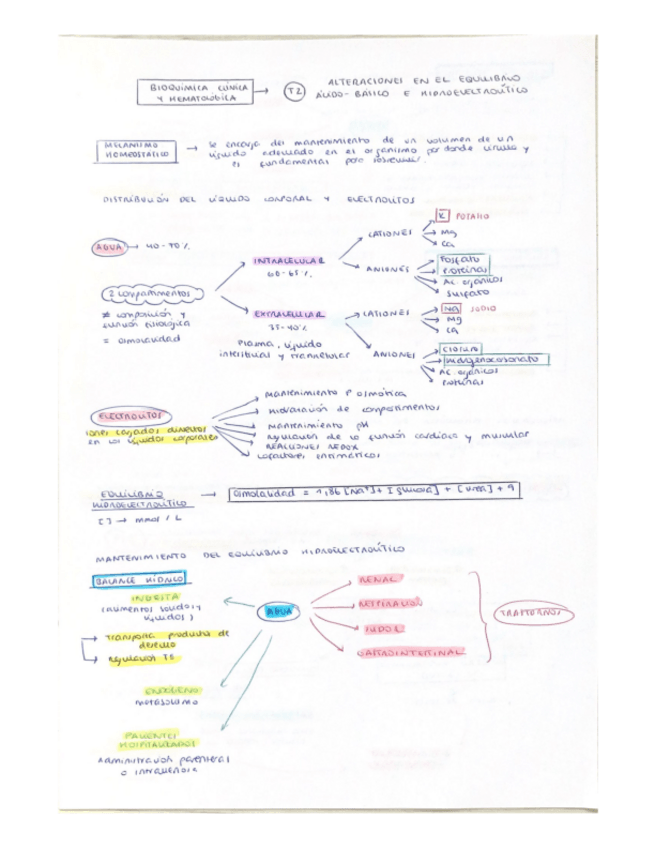 BIOQUÍMICA CLÍNICA
Y HEMATOLÓGICA
T2
ALTERACIONES EN EL EQUILIBRIO
ÁCIDO-BÁSICO E HIDROELECTROLÍTICO
MECANISMO
HOMEOSTÁTICO
→ se encarga del mantenimiento de un volumen de un
líquido adecuado en el organismo por donde circula y
es fundamental para sobrevivir.
DISTRIBUCIÓN DEL LÍQUIDO CORPORAL Y ELECTROLITOS
AGUA → 40-70%
2 compartimentos
≠ composición y
función fisiológica
= osmolalidad
INTRACELULAR
60-65%
CATIONES
K POTASIO
Mg
Ca
ANIONES
Fosfato
Proteínas
Ac. orgánicos
Sulfato
EXTRACELULAR
35-40%
Plasma, líquido
intersticial y transcelular
CATIONES
Na SODIO
Mg
Ca
ANIONES
Cloruro
Hidrogenocarbonato
Ac. orgánicos
Proteínas
ELECTROLITOS
iones cargados disueltos
en los líquidos corporales
Mantenimiento P osmótica
Hidratación de compartimentos
Mantenimiento pH
Regulación de la función cardíaca y muscular
REACCIONES REDOX
Cofactores enzimáticos
EQUILIBRIO
HIDROELECTROLÍTICO
[ ] → mmol / L
Osmolalidad = 1,86 [Na⁺] + [glucosa] + [urea] + 9
MANTENIMIENTO DEL EQUILIBRIO HIDROELECTROLÍTICO
BALANCE HÍDRICO
INGESTA
(alimentos sólidos y
líquidos)
Transporta productos de
desecho
Regulación Tª
ENDÓGENO
metabolismo
PACIENTES
HOSPITALIZADOS
Administración parenteral
o intravenosa
AGUA
RENAL
RESPIRACIÓN
SUDOR
GASTROINTESTINAL
TRASTORNOS